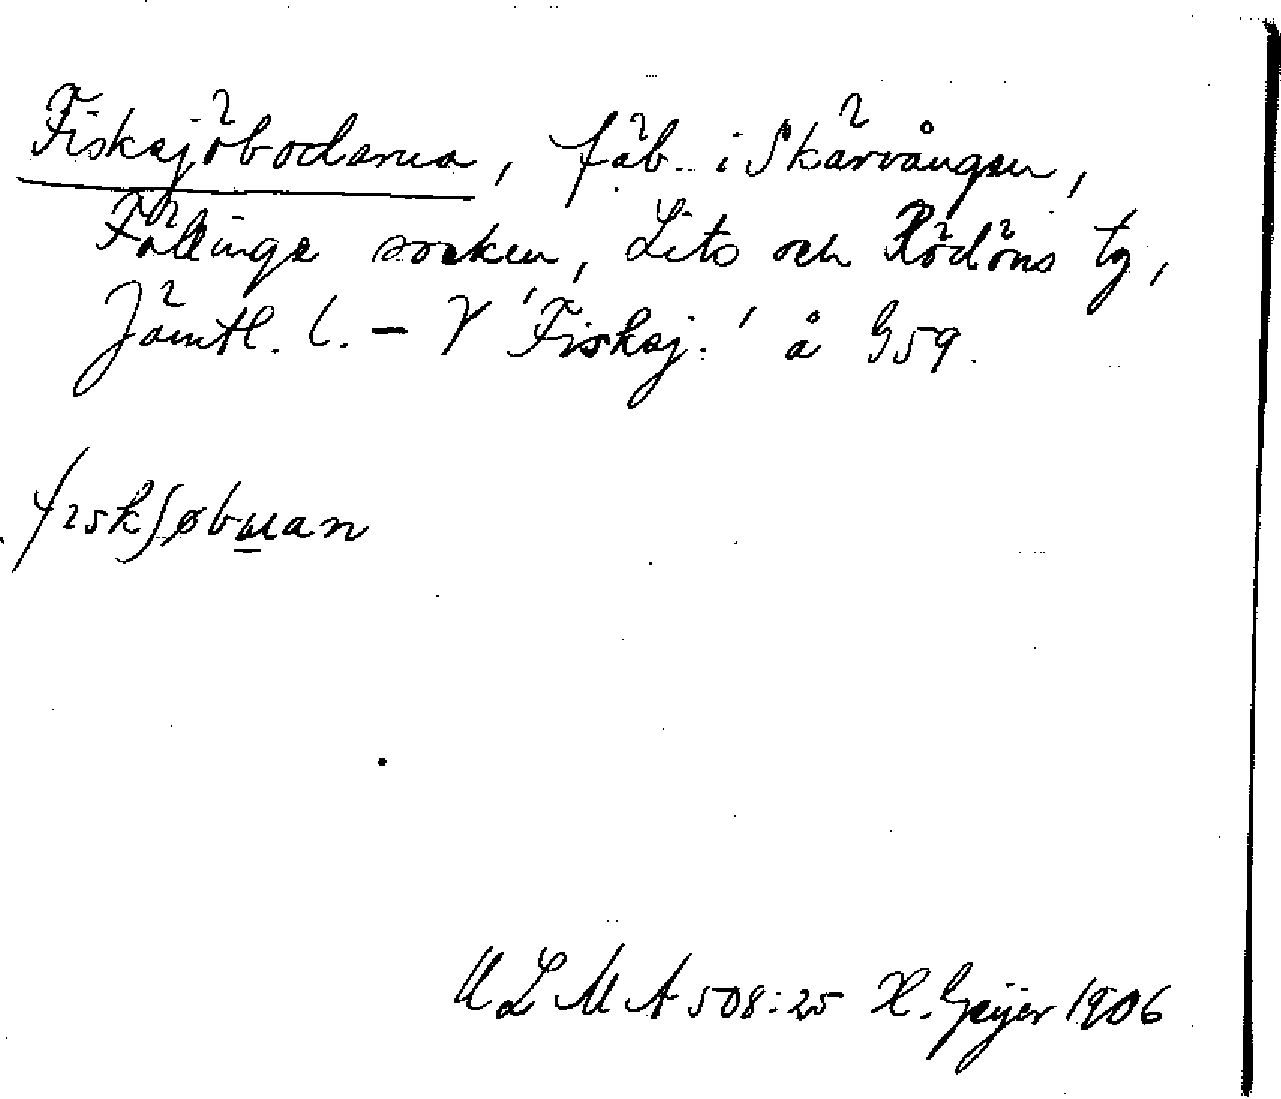 Fisksjöbodarna, fäb. i Skärvången,
Föllinge socken, Lits och Rödöns tg,
Jämtl. l. – V 'Fisksj.' å G59.
fıskʃøbuan
ULMA 508:25 H. Geijer 1906